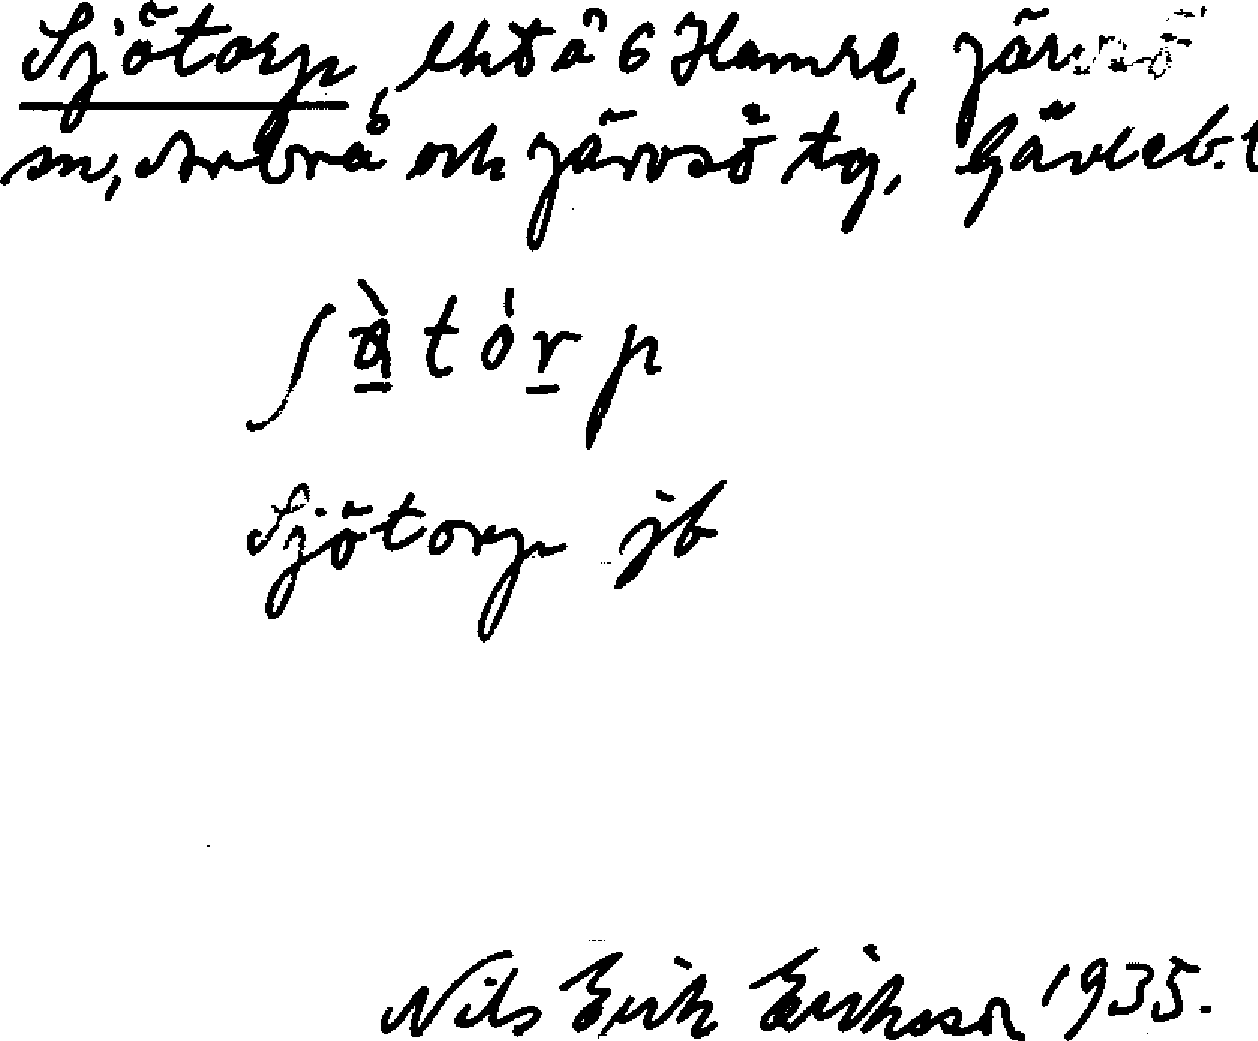 Sjötorp, lht å 6 Hamre, Järvsö
sn, Arbrå och Järvsö tg, Gävleb. l
ʃὰtórp
Sjötorp jb
Nils Erik Eriksson 1935.